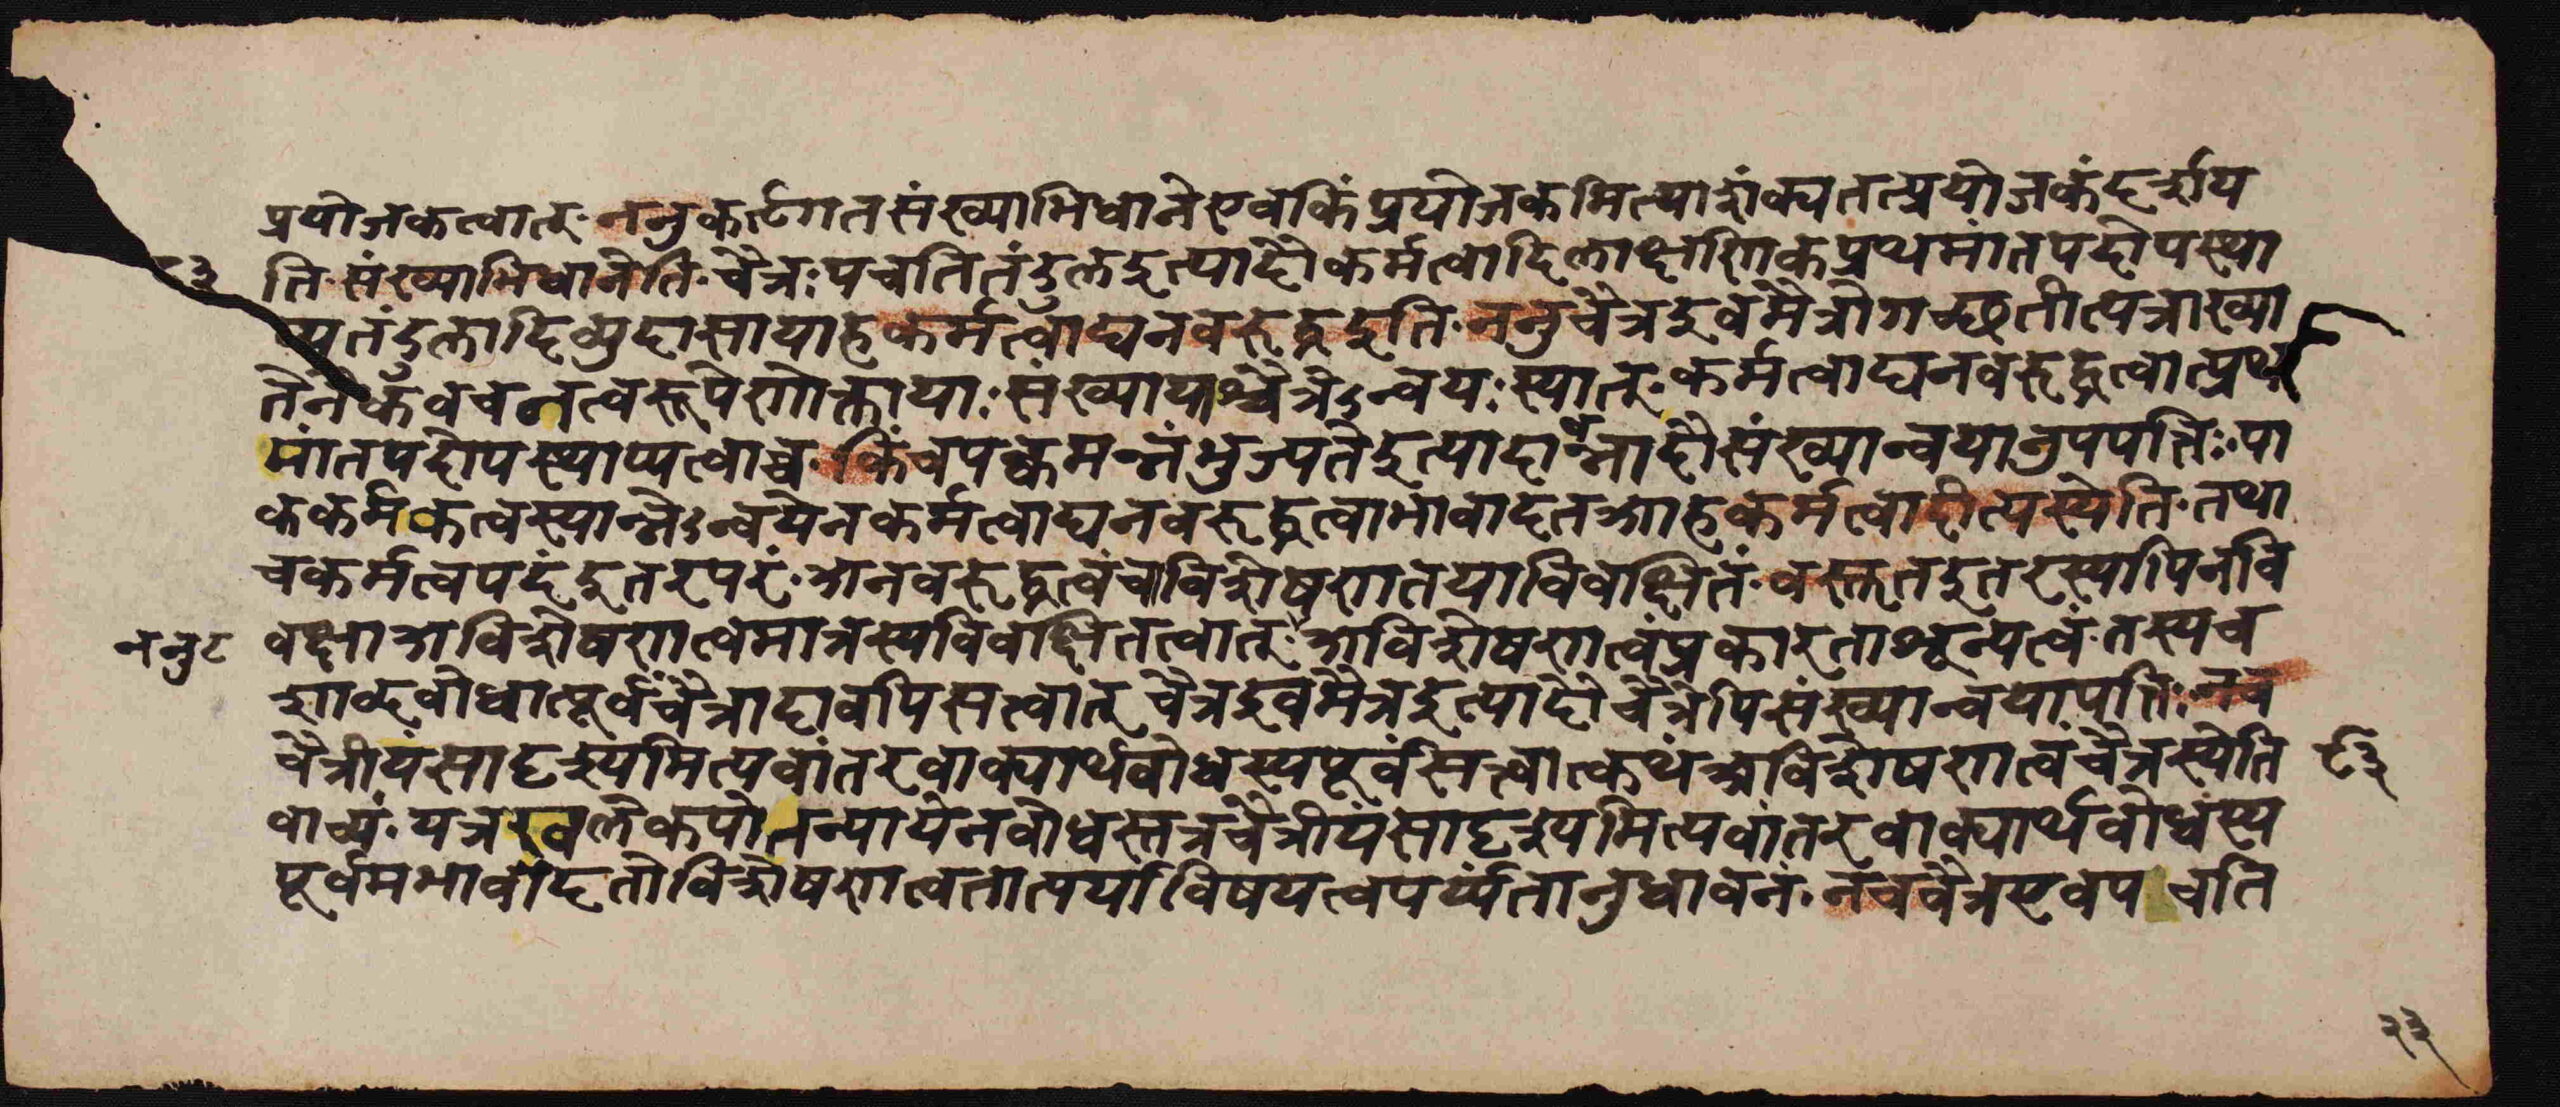 प्रयोजकत्वात् ननुकर्तृगतसंख्याभिधानेएवकिंप्रयोजकमित्याशंक्यतत्प्रयोजकंदर्शय
ति संख्याभिधानेति चैत्रः पचतितंडुलइत्यादौकर्मत्वादिलाक्षणिकप्रथमांतपदोपस्था
प्यतंडुलादिव्युदासायाहकर्मत्वाद्यनवरुद्धइति ननुचैत्रइवमैत्रोगच्छतीत्यत्राख्या
तेनैकवचनत्वरूपेणोक्तायाः संख्यायाश्चैत्रेऽन्वयः स्यात् कर्मत्वाद्यनवरुद्धत्वात्प्रथ
मांतपदोपस्थाप्यत्वाच्च किंचपक्वमन्नंभुज्यतेइत्यादावन्नादौसंख्यान्वयानुपपत्तिः पा
ककर्मकत्वस्यान्नेऽन्वयेनकर्मत्वाद्यनवरुद्धत्वाभावादतआहकर्मत्वादीत्यस्येति तथा
चकर्मत्वपदंइतरपरं अनवरुद्धत्वंचाविशेषणतयाविवक्षितं वस्तुतइतरस्यापिनवि
वक्षाअविशेषणत्वमात्रस्यविवक्षितत्वात् अविशेषणत्वंप्रकारताशून्यत्वं तस्यच
शाब्दबोधात्पूर्वंचैत्रादावपिसत्वात् चैत्रइवमैत्रइत्यादौचैत्रेपिसंख्यान्वयापत्तिः नच
चैत्रीयंसादृश्यमित्यवांतरवाक्यार्थबोधस्यपूर्वंसत्त्वात्कथंअविशेषणत्वंचैत्रस्येति
वाच्यं यत्रखलेकपोतन्यायेनबोधस्तत्रचैत्रीयंसादृश्यमित्यवांतरवाक्यार्थबोधस्य
पूर्वमभावादतोविशेषणत्वतात्पर्याविषयत्वपर्य्यंतानुधावनं नचचैत्रएवप चति
ननुट
टी३
२३